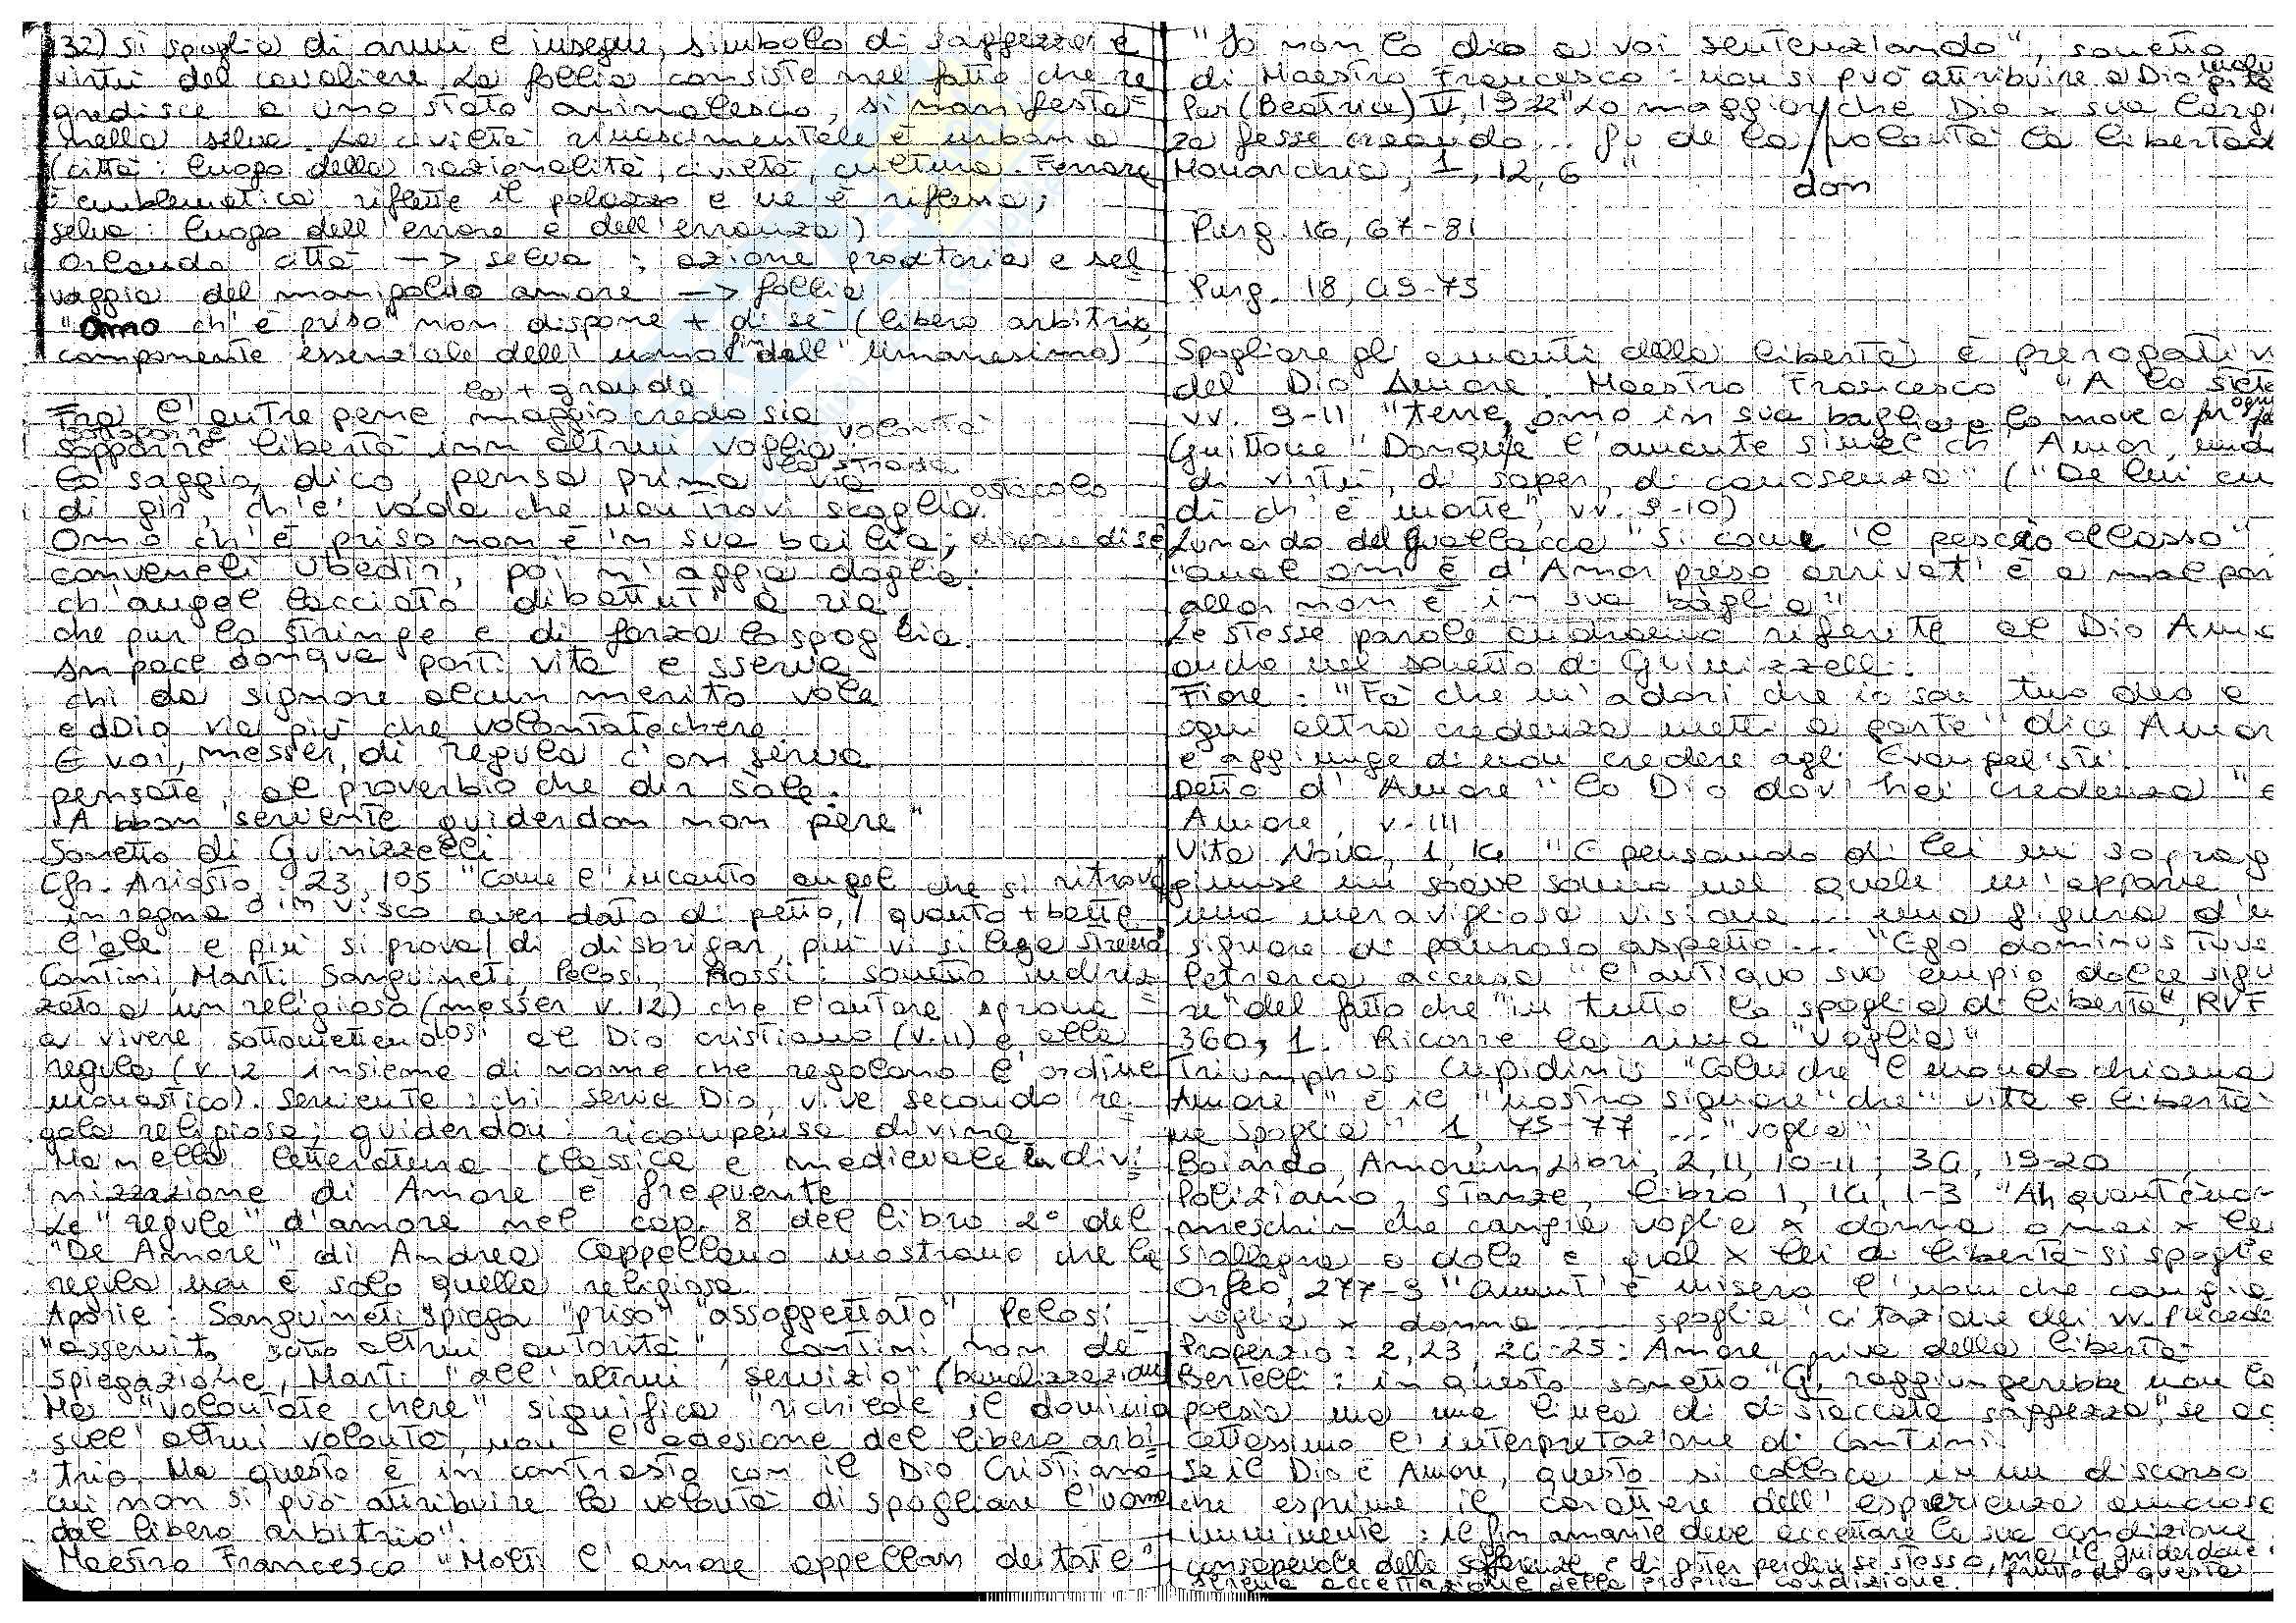 132) si spoglia di armi e insegne, simbolo di saggezza e
virtù del cavaliere. La follia consiste nel fatto che re
gredisce a uno stato animalesco, si manifesta
nella selva. La civiltà rinascimentale è urbana
(città: luogo della razionalità, civiltà, cultura. Ferrara
è emblematica riflette il palazzo e ne è riflessa;
selva: luogo dell'errore e dell'erranza)
Orlando città -> selva ; azione proditoria e sel
vaggia del manipolio amore -> follia
"Omo ch'è priso" non dispone + di sé (libero arbitrio,
componente essenziale dell'uomo fin dall'Umanesimo)
la + grande
Fra l'autre pene maggio credo sia
sottoporre volontà
sopporre libertà inn altrui voglia
la strada
lo saggio, dico, pensa prima via
ostacolo
di gir, ch'e' vada che non trovi scoglio.
Omo ch'è priso non è in sua bailia; dispone di sé
conveneli ubedir, poi n'aggia doglia:
ch'augel lacciato dibattut'è ria,
che pur lo stringe e di forza lo spoglia.
In pace donqua porti vita e sserva
chi da signore alcun merito vole
edDio via più che volontate chere.
E voi, messer, di regula c'on serva
pensate al proverbio che dir sòle:
"A bbon servente guiderdon non père"
Sonetto di Guinizzelli
Cfr. Ariosto, 23, 105 "Come l'incauto augel che si ritrova
in ragna o in visco aver dato di petto,/ quanto + batte
l'ale e più si prova/ di disbrigar, più vi si lega stretto"
Contini, Marti, Sanguineti, Pelosi, Rossi: sonetto indiriz
zato a un religioso (messer v. 12) che l'autore sprona
a vivere sottomettendosi al Dio cristiano (v. 11) e alla
regula (v. 12 insieme di norme che regolano l'ordine
monastico). Servente: chi serve Dio, vive secondo re
gola religiosa; guiderdon: ricompensa divina.
Ma nella letteratura classica e medievale la divi
nizzazione di Amore è frequente
Le "regule" d'amore nel cap. 8 del libro 2° del
"De Amore" di Andrea Cappellano mostrano che la
regula non è solo quella religiosa
Aporie: Sanguineti spiega "priso" "assoggettato" Pelosi
"asservito sotto altrui autorità", Contini non dà
spiegazione, Marti "all'altrui servizio" (banalizzazione)
Ma "volontate chere" significa "richiede il dominio
sull'altrui volontà, non l'adesione del libero arbi
trio. Ma questo è in contrasto con il Dio Cristiano
cui non si può attribuire la volontà di spogliare l'uomo
dal libero arbitrio".
Maestro Francesco "Molti l'amore appellan deitate"
"Io non lo dico a voi sentenziando", sonetto
di Maestro Francesco: non si può attribuire a Dio
Par (Beatrice) V, 19-22 "Lo maggior che Dio x sua larg
don
za fesse creando... fu de la volontà la libertad
Monarchia, 1, 12, 6 "
Purg. 16, 67-81
Purg. 18, 49-75
Spogliare gli amanti della libertà è prerogativ
del Dio Amore. Maestro Francesco "A lo
vv. 9-11 "tene, omo in sua baglia e lo move a
Guittone "Donque l'amante simel ch'Amor,
di virtù, di saper, di canosenza" ("De lui
di ch'è morte", vv. 9-10)
Lunardo del Guallacca "Sì come 'l pescio al lasso"
"qual om è d'Amor preso arrivat'è a mal por
allor non è in sua baglia"
Le stesse parole andranno riferite al Dio Amo
anche nel sonetto di Guinizzelli.
Fiore: "Fa che m'adori che io son tuo deo e
ogni altra credenza metti a parte" dice Amor
e aggiunge di non credere agli Evangelisti.
Detto d'Amore "lo Dio dov'hai credenza" e
Amore, v. 111
Vita Nova, 1, 14 "E pensando di lei mi soprag
giunse un soave sonno nel quale m'apparve
una meravigliosa visione... una figura d'u
signore di pauroso aspetto... "Ego dominus tuus
Petrarca accusa "l'antiquo suo empio dolce sign
re" del fatto che "in tutto lo spoglia di libertà", RVF
360, 1. Ricorre la rima "voglia"
Triumphus Cupidinis "Colui che 'l mondo chiama
Amore" è il "nostro signore" che "vita e libertà
ne spoglia" 1, 75-77 ... "voglia"
Boiardo, Amorum Libri, 2, 11, 10-11; 34, 19-20
Poliziano, Stanze, libro 1, 14, 1-3 "Ah quant'è uo
meschin che cangia voglia x donna o mai x lei
s'allegra o dole e qual x lei di libertà si spoglia
Orfeo, 277-9 "Quant'è misero l'uom che cangia
voglia x donna ---- spoglia" citazione dei vv. precedi
Properzio: 2, 23, 24-25: Amore priva della libertà
Bertelli: in questo sonetto "G. raggiungerebbe non la
poesia ma una linea di distaccata saggezza", se ac
cettassimo l'interpretazione di Contini.
Se il Dio è Amore, questo si colloca in un discorso
che esprime il carattere dell'esperienza amorosa
imminente: il fin amante deve accettare la sua condizione
consapevole della sofferenza e di poter perdere se stesso, ma il guiderdone è
frutto di questa
serena accettazione della propria condizione.